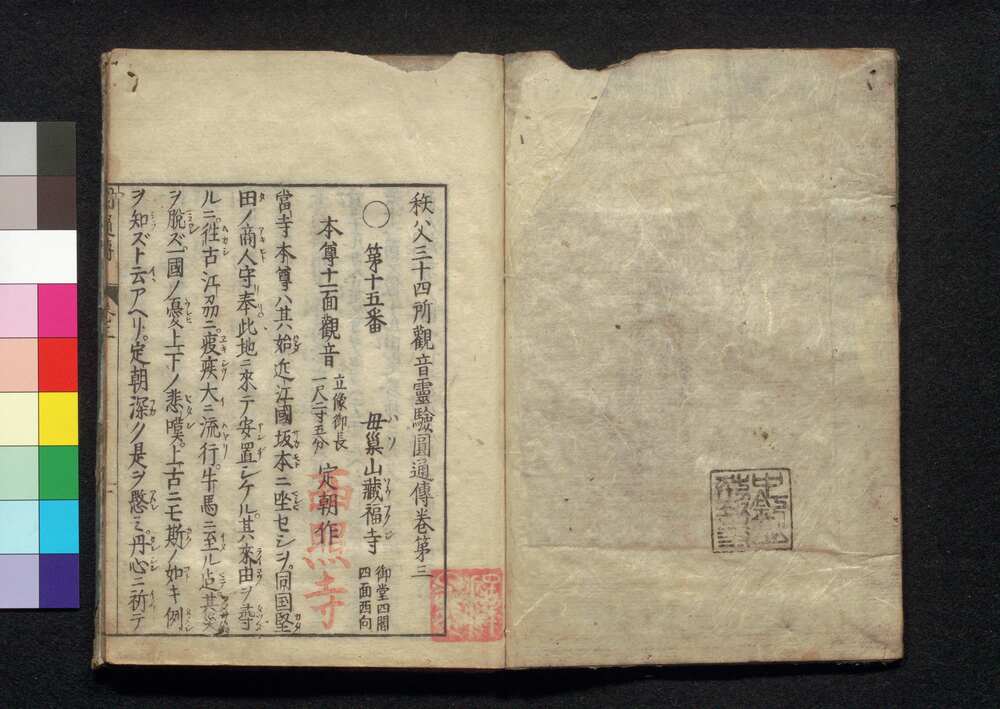 秩父三十四所觀音靈驗圓通傳卷第三
○第十五番 母巢山藏福寺 御堂四間四面西向
本尊十一面觀音 立像御長一尺二寸五分 定朝作
當寺本尊ハ其始近江國坂本ニ坐セシヲ。同国堅
田ノ商人守奉此地ニ來テ安置シケル。其來由ヲ尋
ルニ。徃古江刕ニ疫疾大ニ流行。牛馬ニ至ル迠其災
ヲ脫ズ。一國ノ憂上下ノ悲嘆。上古ニモ斯ノ如キ例
ヲ知ズト云アヘリ。定朝深ク是ヲ愍ミ。丹心ニ祈テ
西照寺